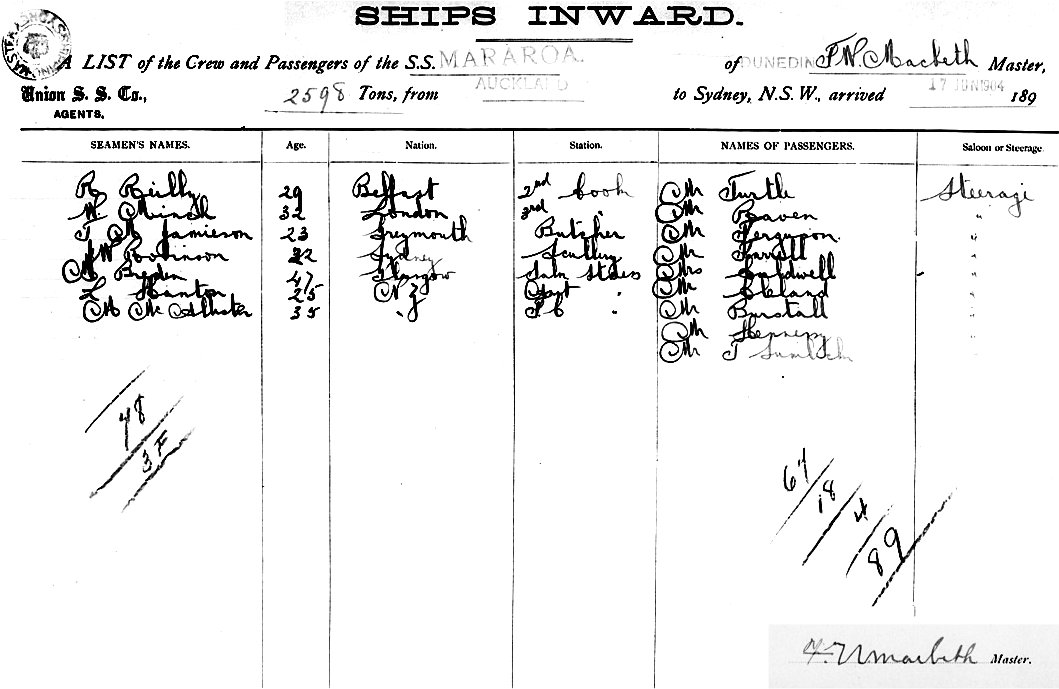 SHIPS INWARD.
A LIST of the Crew and Passengers of the S.S. MARAROA. of DUNEDIN Macbeth Master,
Union S. S. Co., 2598 Tons, from AUCKLAND to Sydney, N.S.W., arrived 17 JUN 1904 189
AGENTS.
SEAMEN'S NAMES. Age. Nation. Station. NAMES OF PASSENGERS. Saloon or Steerage.
R Reilly 29 Belfast 2nd Cook Mr Turtle Steerage
W Minch 32 London 3rd " Mr Raven "
J M Jamieson 23 Greymouth Butcher Mr Ferguson "
W Robinson 22 Sydney Scullery Mr Farrell "
Breden 47 Glasgow Stdess Mrs Caldwell "
L Hanton 25 N Z " Mr Cleland "
M McAllister 35 " " Mr Burstall "
Mr Hennessy "
Mr J
48
3 F
67
18
4
89
Macbeth Master.